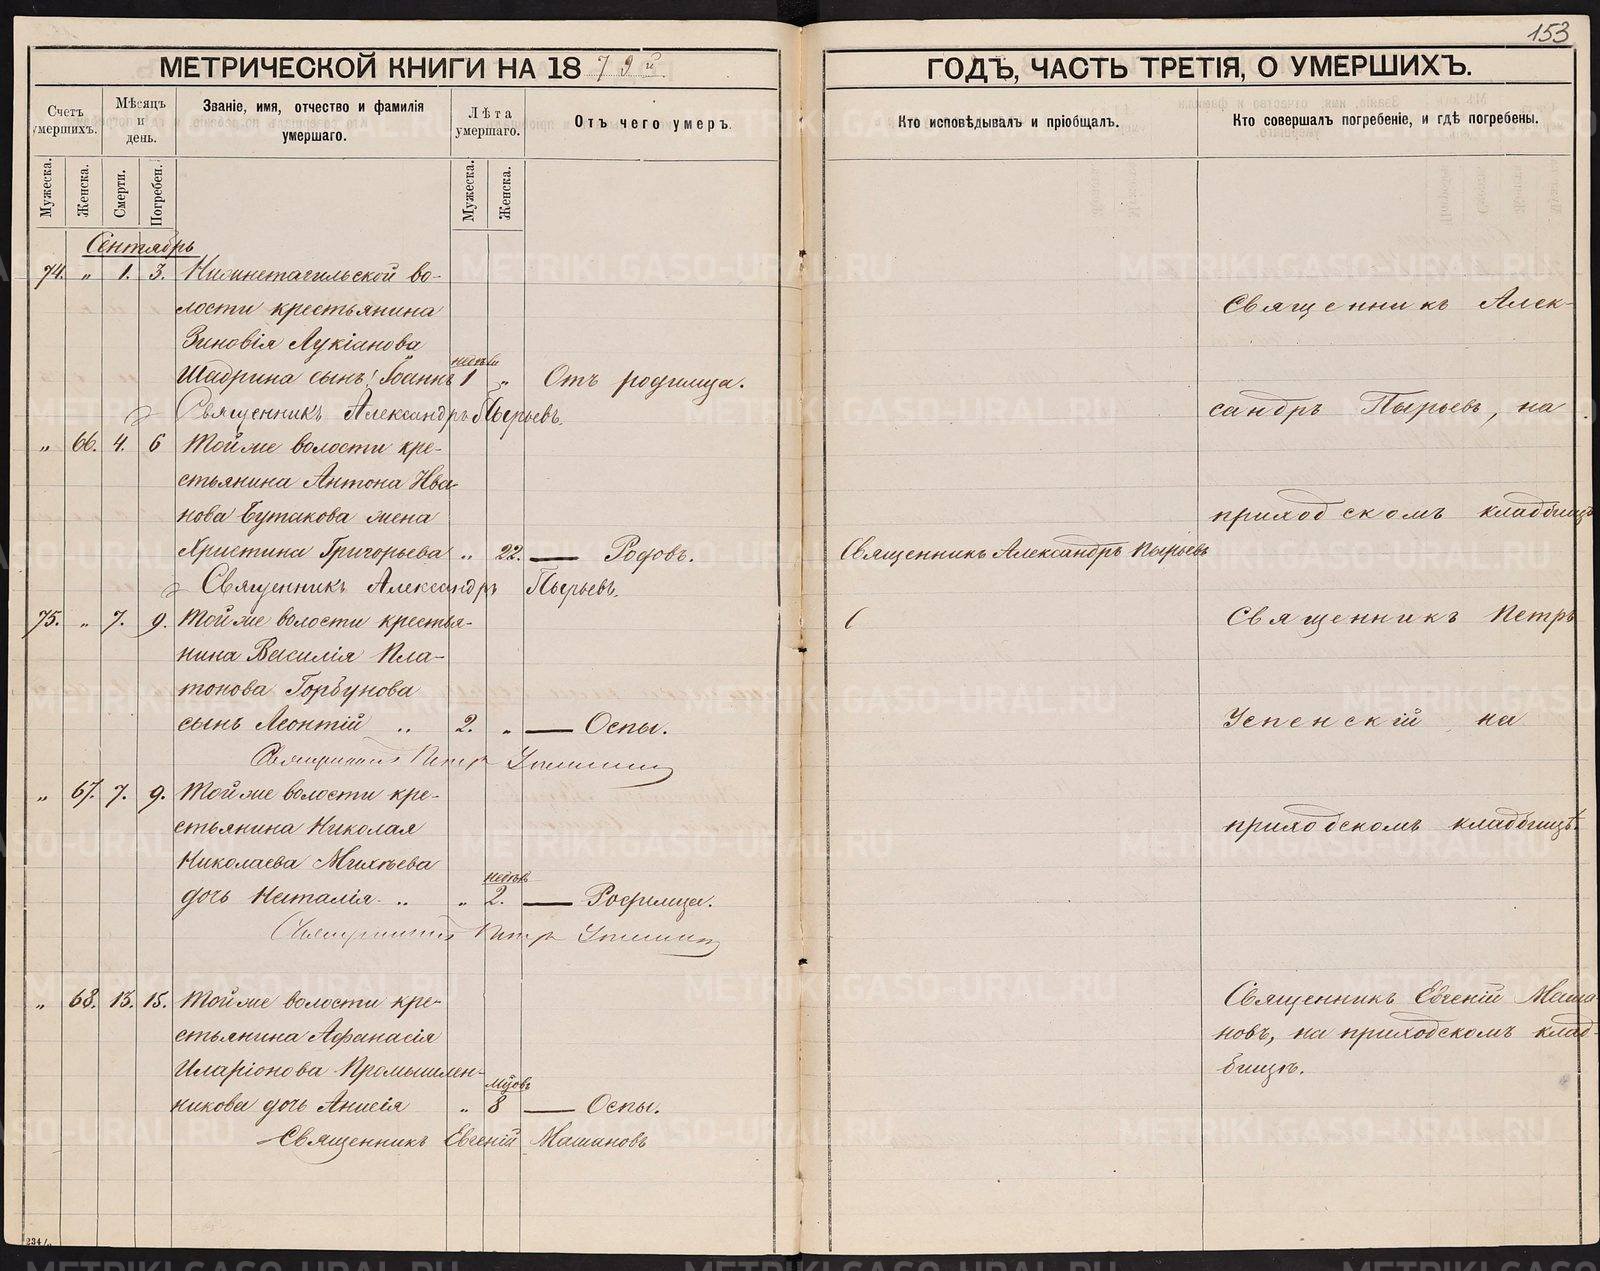 153
МЕТРИЧЕСКОЙ КНИГИ НА 1879й ГОДЪ, ЧАСТЬ ТРЕТІЯ, О УМЕРШИХЪ.
Счетъ умершихъ.
Мѣсяцъ и день.
Званіе, имя, отчество и фамилія умершаго.
Лѣта умершаго.
Отъ чего умеръ.
Кто исповѣдывалъ и пріобщалъ.
Кто совершалъ погребеніе, и гдѣ погребены.
Мужеска. Женска. Смерти. Погребен. Мужеска. Женска.
Сентябрь
74. „ 1. 3. Нижнетагильской во-
лости крестьянина
Зиновія Лукіанова
недѣли
Шадрина сынъ: Іоаннъ 1 „ Отъ родимца.
Священникъ Александръ Пырьевъ.
Священникъ Алек-
сандръ Пырьевъ, на
„ 66. 4. 6 Той же волости кре-
стьянина Антона Ива-
нова Бутакова жена
приходскомъ кладбищѣ
Христина Григорьева „ 22. — Родовъ. Священникъ Александръ Пырьевъ
Священникъ Александръ Пырьевъ.
75. „ 7. 9. Той же волости крестья-
нина Василія Пла-
тонова Горбунова
сынъ Леонтій „ 2. „ — Оспы.
Священникъ Петръ Успенский
Священникъ Петръ
Успенскій на
„ 67. 7. 9. Той же волости кре-
стьянина Николая
приходскомъ кладбищѣ.
Николаева Михѣева
недѣль
дочь Наталія „ „ 2. — Родимца.
Священникъ Петръ Успенский
„ 68. 13. 15. Той же волости кре-
стьянина Афанасія
Иларіонова Промышлен-
мѣсяцевъ
никова дочь Анисія „ 8 — Оспы.
Священникъ Евгеній Машановъ
Священникъ Евгеній Маша-
новъ, на приходскомъ клад-
бищѣ.
METRIKI.GASO-URAL.RU